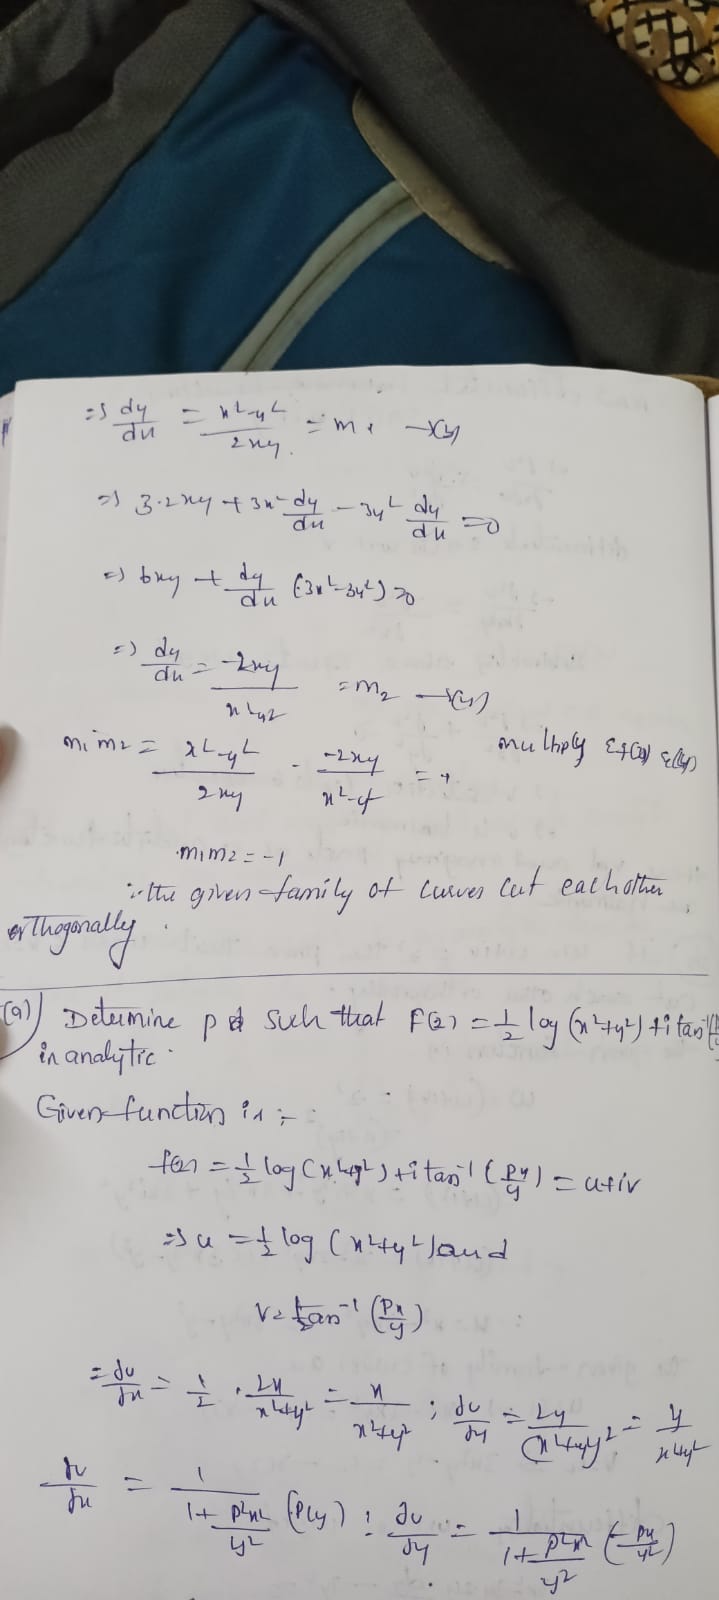 ⇒ dy/dx = x²-y²/2xy = m₁ →(3)
⇒ 3·2xy + 3x² dy/dx - 3y² dy/dx = 0
⇒ 6xy + dy/dx (3x²-3y²) = 0
⇒ dy/dx = -2xy/x²-y² = m₂ →(4)
m₁m₂ = x²-y²/2xy · -2xy/x²-y² = multiply
m₁m₂ = -1
∴ the given family of curves cut each other
orthogonally.
(9) Determine p such that f(z) = 1/2 log (x²+y²) + i tan⁻¹
in analytic.
Given function is :-
f(z) = 1/2 log (x²+y²) + i tan⁻¹ (px/y) = u+iv
⇒ u = 1/2 log (x²+y²) and
v = tan⁻¹ (px/y)
= ∂u/∂x = 1/2 · 2x/x²+y² = x/x²+y² ; ∂u/∂y = 2y/(x²+y)² = y/x²+y²
∂v/∂x = 1/1+p²x²/y² (p/y) ; ∂v/∂y = 1/1+p²x²/y² (-px/y²)